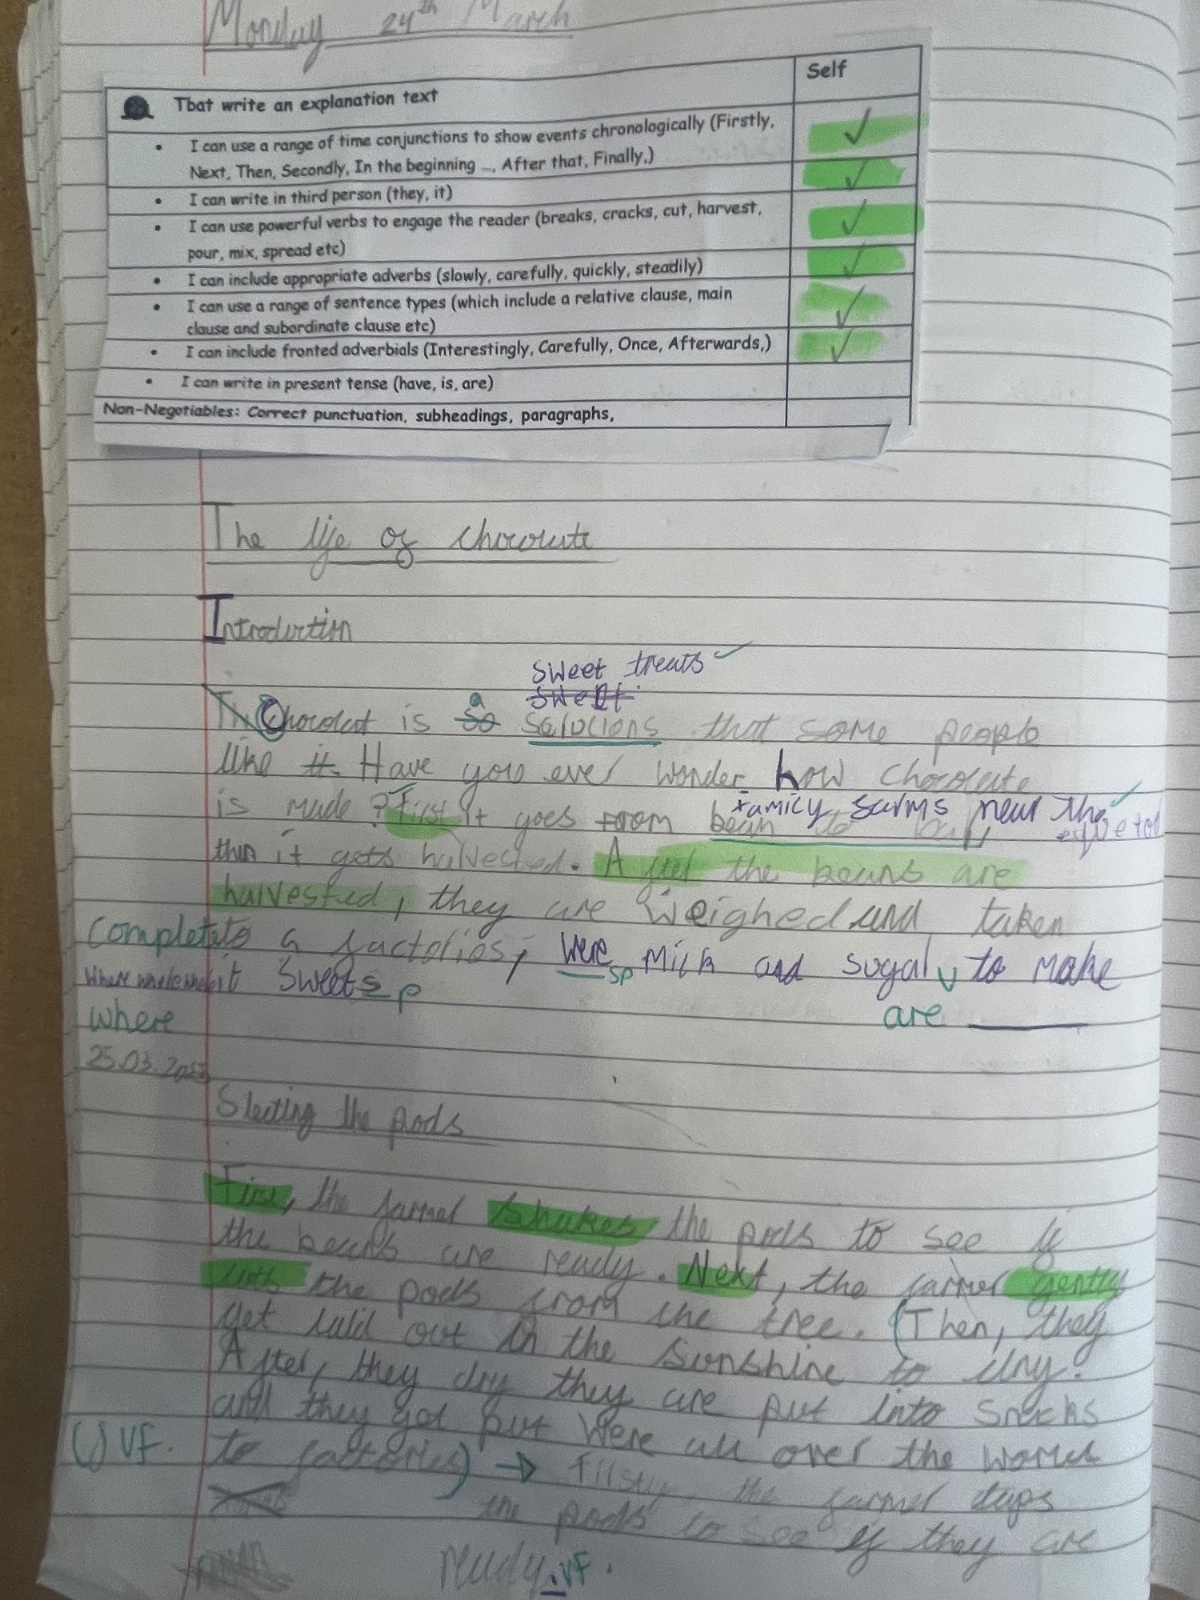 Monday 24th March
Self
Tbat write an explanation text
I can use a range of time conjunctions to show events chronologically (Firstly,
Next, Then, Secondly, In the beginning ..., After that, Finally,)
I can write in third person (they, it)
I can use powerful verbs to engage the reader (breaks, cracks, cut, harvest,
pour, mix, spread etc)
I can include appropriate adverbs (slowly, carefully, quickly, steadily)
I can use a range of sentence types (which include a relative clause, main
clause and subordinate clause etc)
I can include fronted adverbials (Interestingly, Carefully, Once, Afterwards,)
I can write in present tense (have, is, are)
Non-Negotiables: Correct punctuation, subheadings, paragraphs,
The life of chocolate
Introduction
sweet treats
a
Chocolat is so that some people
like it. Have you ever wonder how chocolate
family farms near the
is made? First it goes bean
then it gets harvested. After the beans are
harvested, they are weighed and taken
Complete to a factories, were milk and sugar to make
it sweet sp
sp
where
are
25.03
the pods
First, the farmer shakes the pods to see if
the beans are ready. Next, the farmer gently
the pods from the tree. (Then, they
get laid out in the sunshine to dry.
After, they dry they are put into sacks
and they got put were all over the world
() VF. to factories) → Firstly the farmer taps
the pods to see if they are
ready. VF.